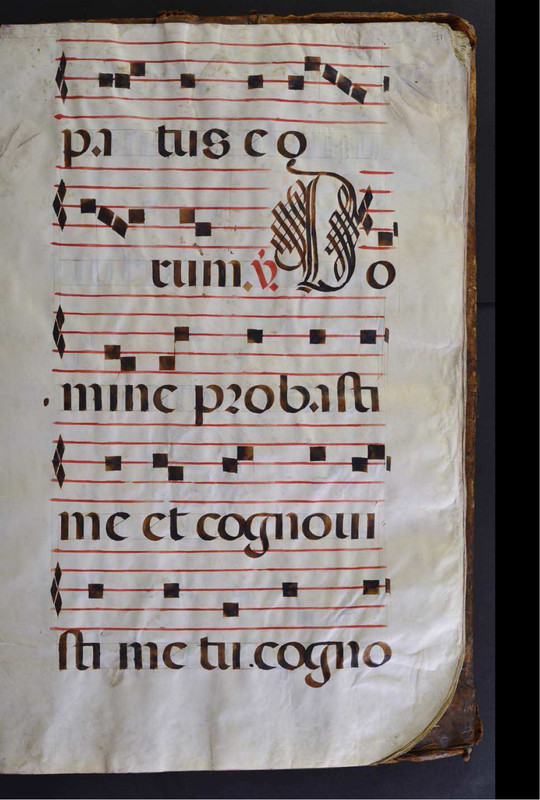 pa tus eo
rum. ℣. Do
mine probasti
me et cognoui
sti me tu. cogno